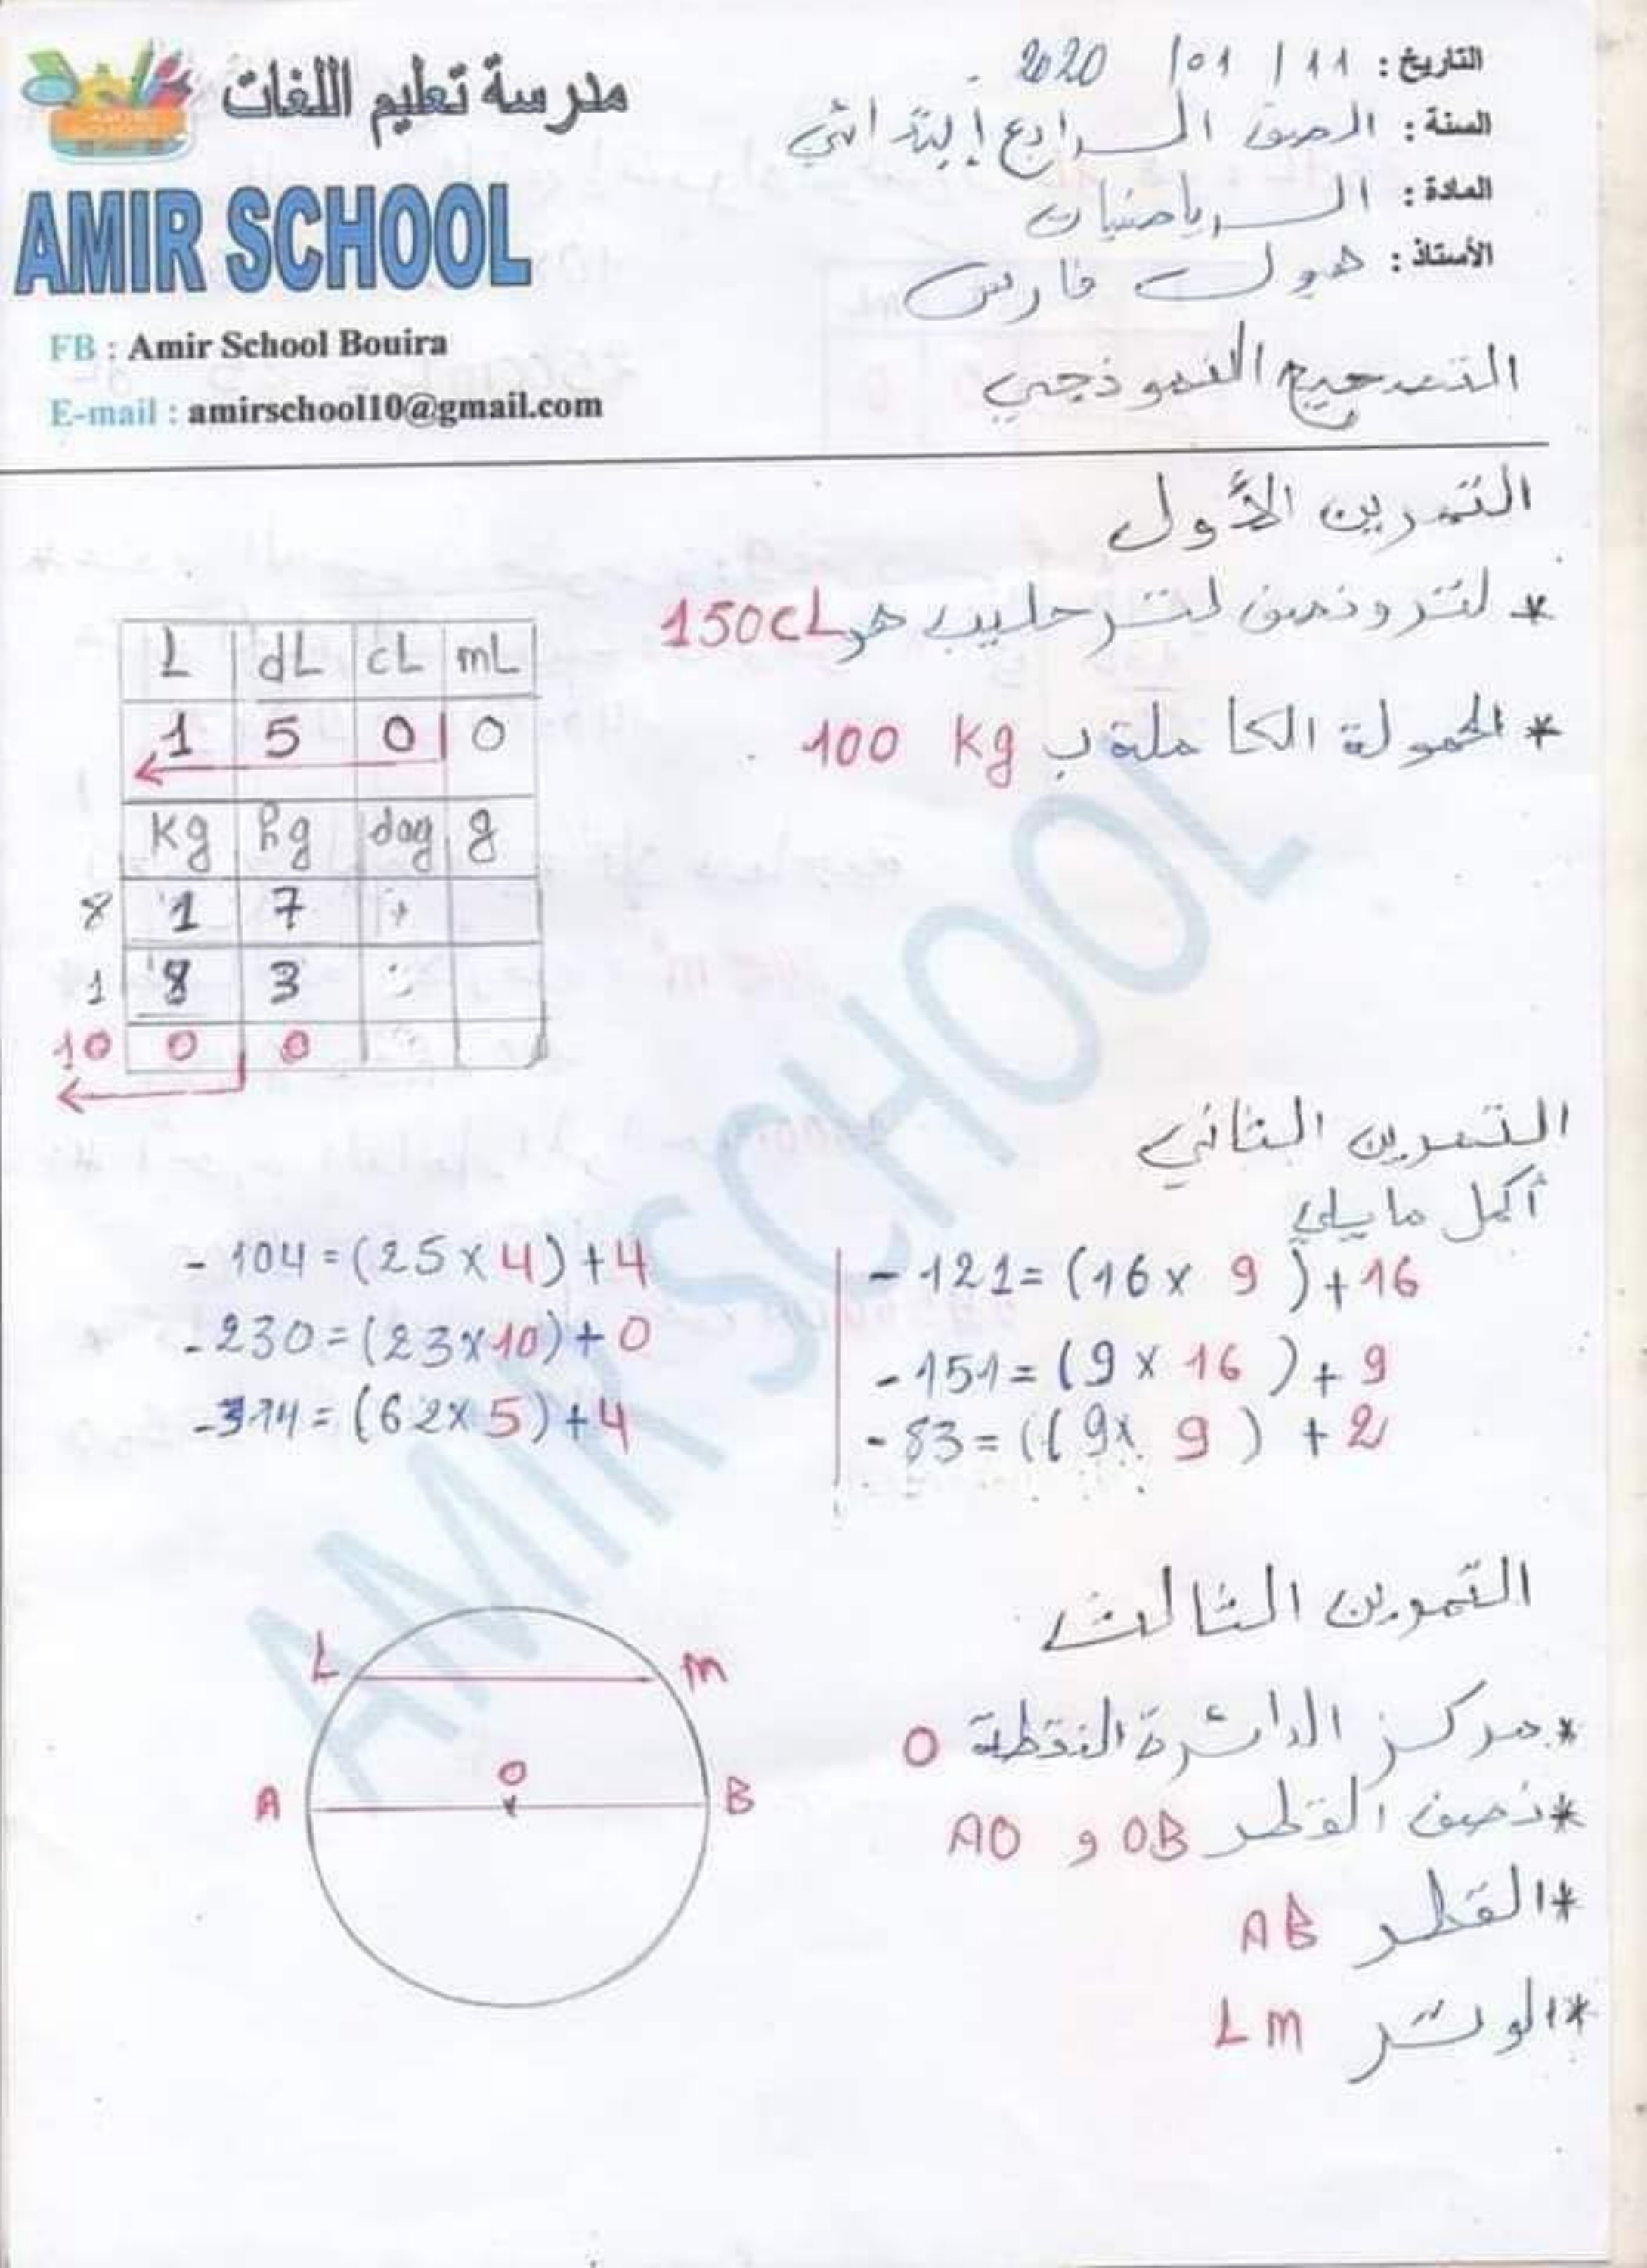 مدرسة تعليم اللغات
AMIR SCHOOL
FB : Amir School Bouira
E-mail : amirschool10@gmail.com
التاريخ : 11 / 01 / 2020
السنة : الصف الرابع إبتدائي
المادة : الرياضيات
الأستاذ : فارس
التصحيح النموذجي
التمرين الأول
* لتر ونصف لتر حليب هو 150cL
* الحمولة الكاملة ب 100 Kg
L dL cL mL
1 5 0 0
Kg hg dag g
8 1 7
1 8 3
10 0 0
التمرين الثاني
أكمل مايلي
- 121 = (16 x 9) + 16
- 151 = (9 x 16) + 9
- 83 = ((9x 9) + 2
- 104 = (25 x 4) + 4
- 230 = (23x10) + 0
- 314 = (62x 5) + 4
التمرين الثالث
* مركز الدائرة النقطة O
* نصف القطر OB و AO
* القطر AB
* الوتر Lm
L m
O
A B
AMIR SCHOOL